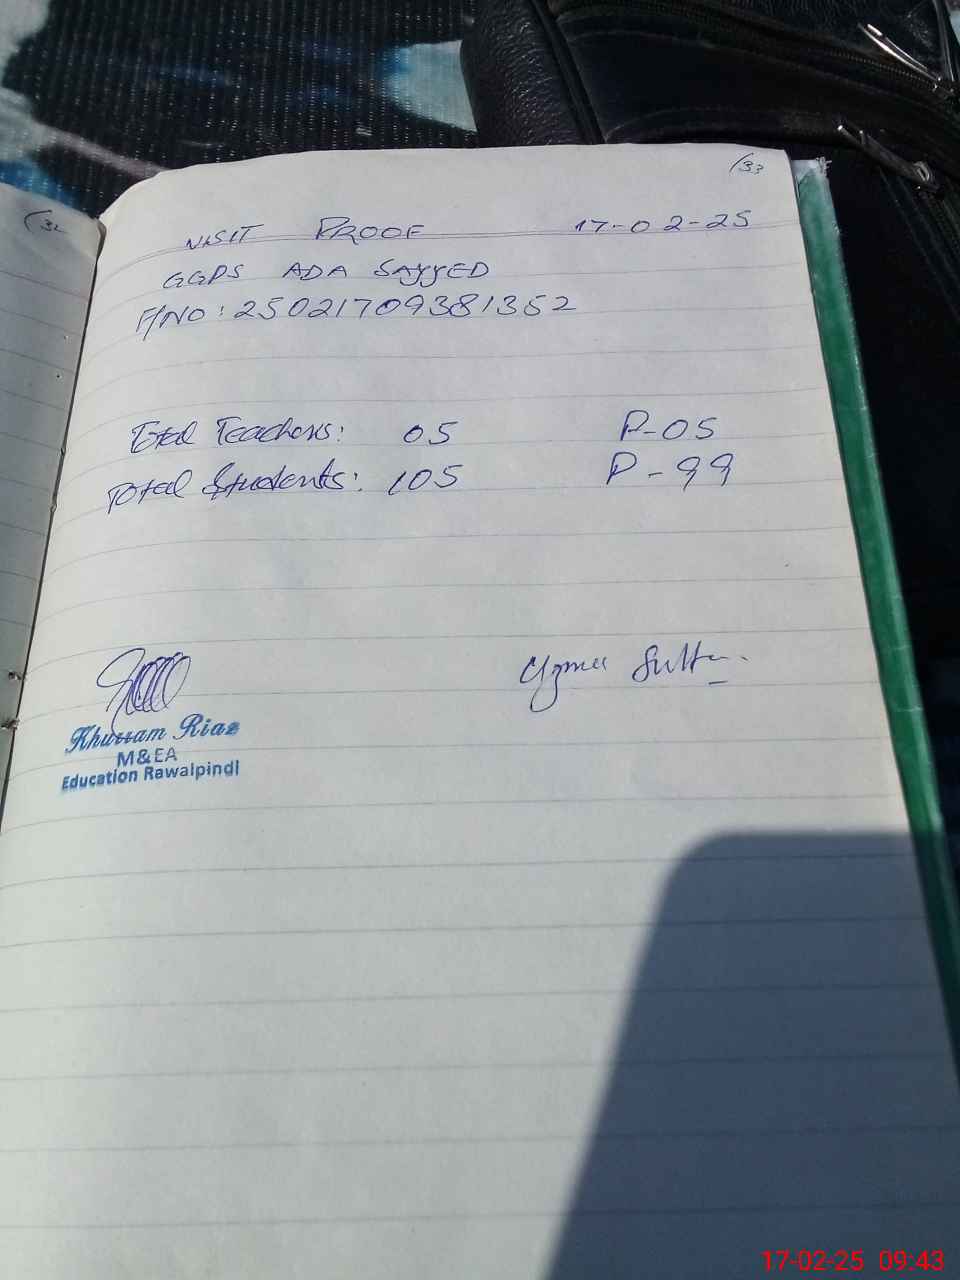 (32
(33
VISIT PROOF 17-02-25
GGPS ADA SAYYED
F/NO: 25021709381352
Total Teachers: 05 P-05
Total Students: 105 P-99
Khurram Riaz
M&EA
Education Rawalpindi
17-02-25 09:43